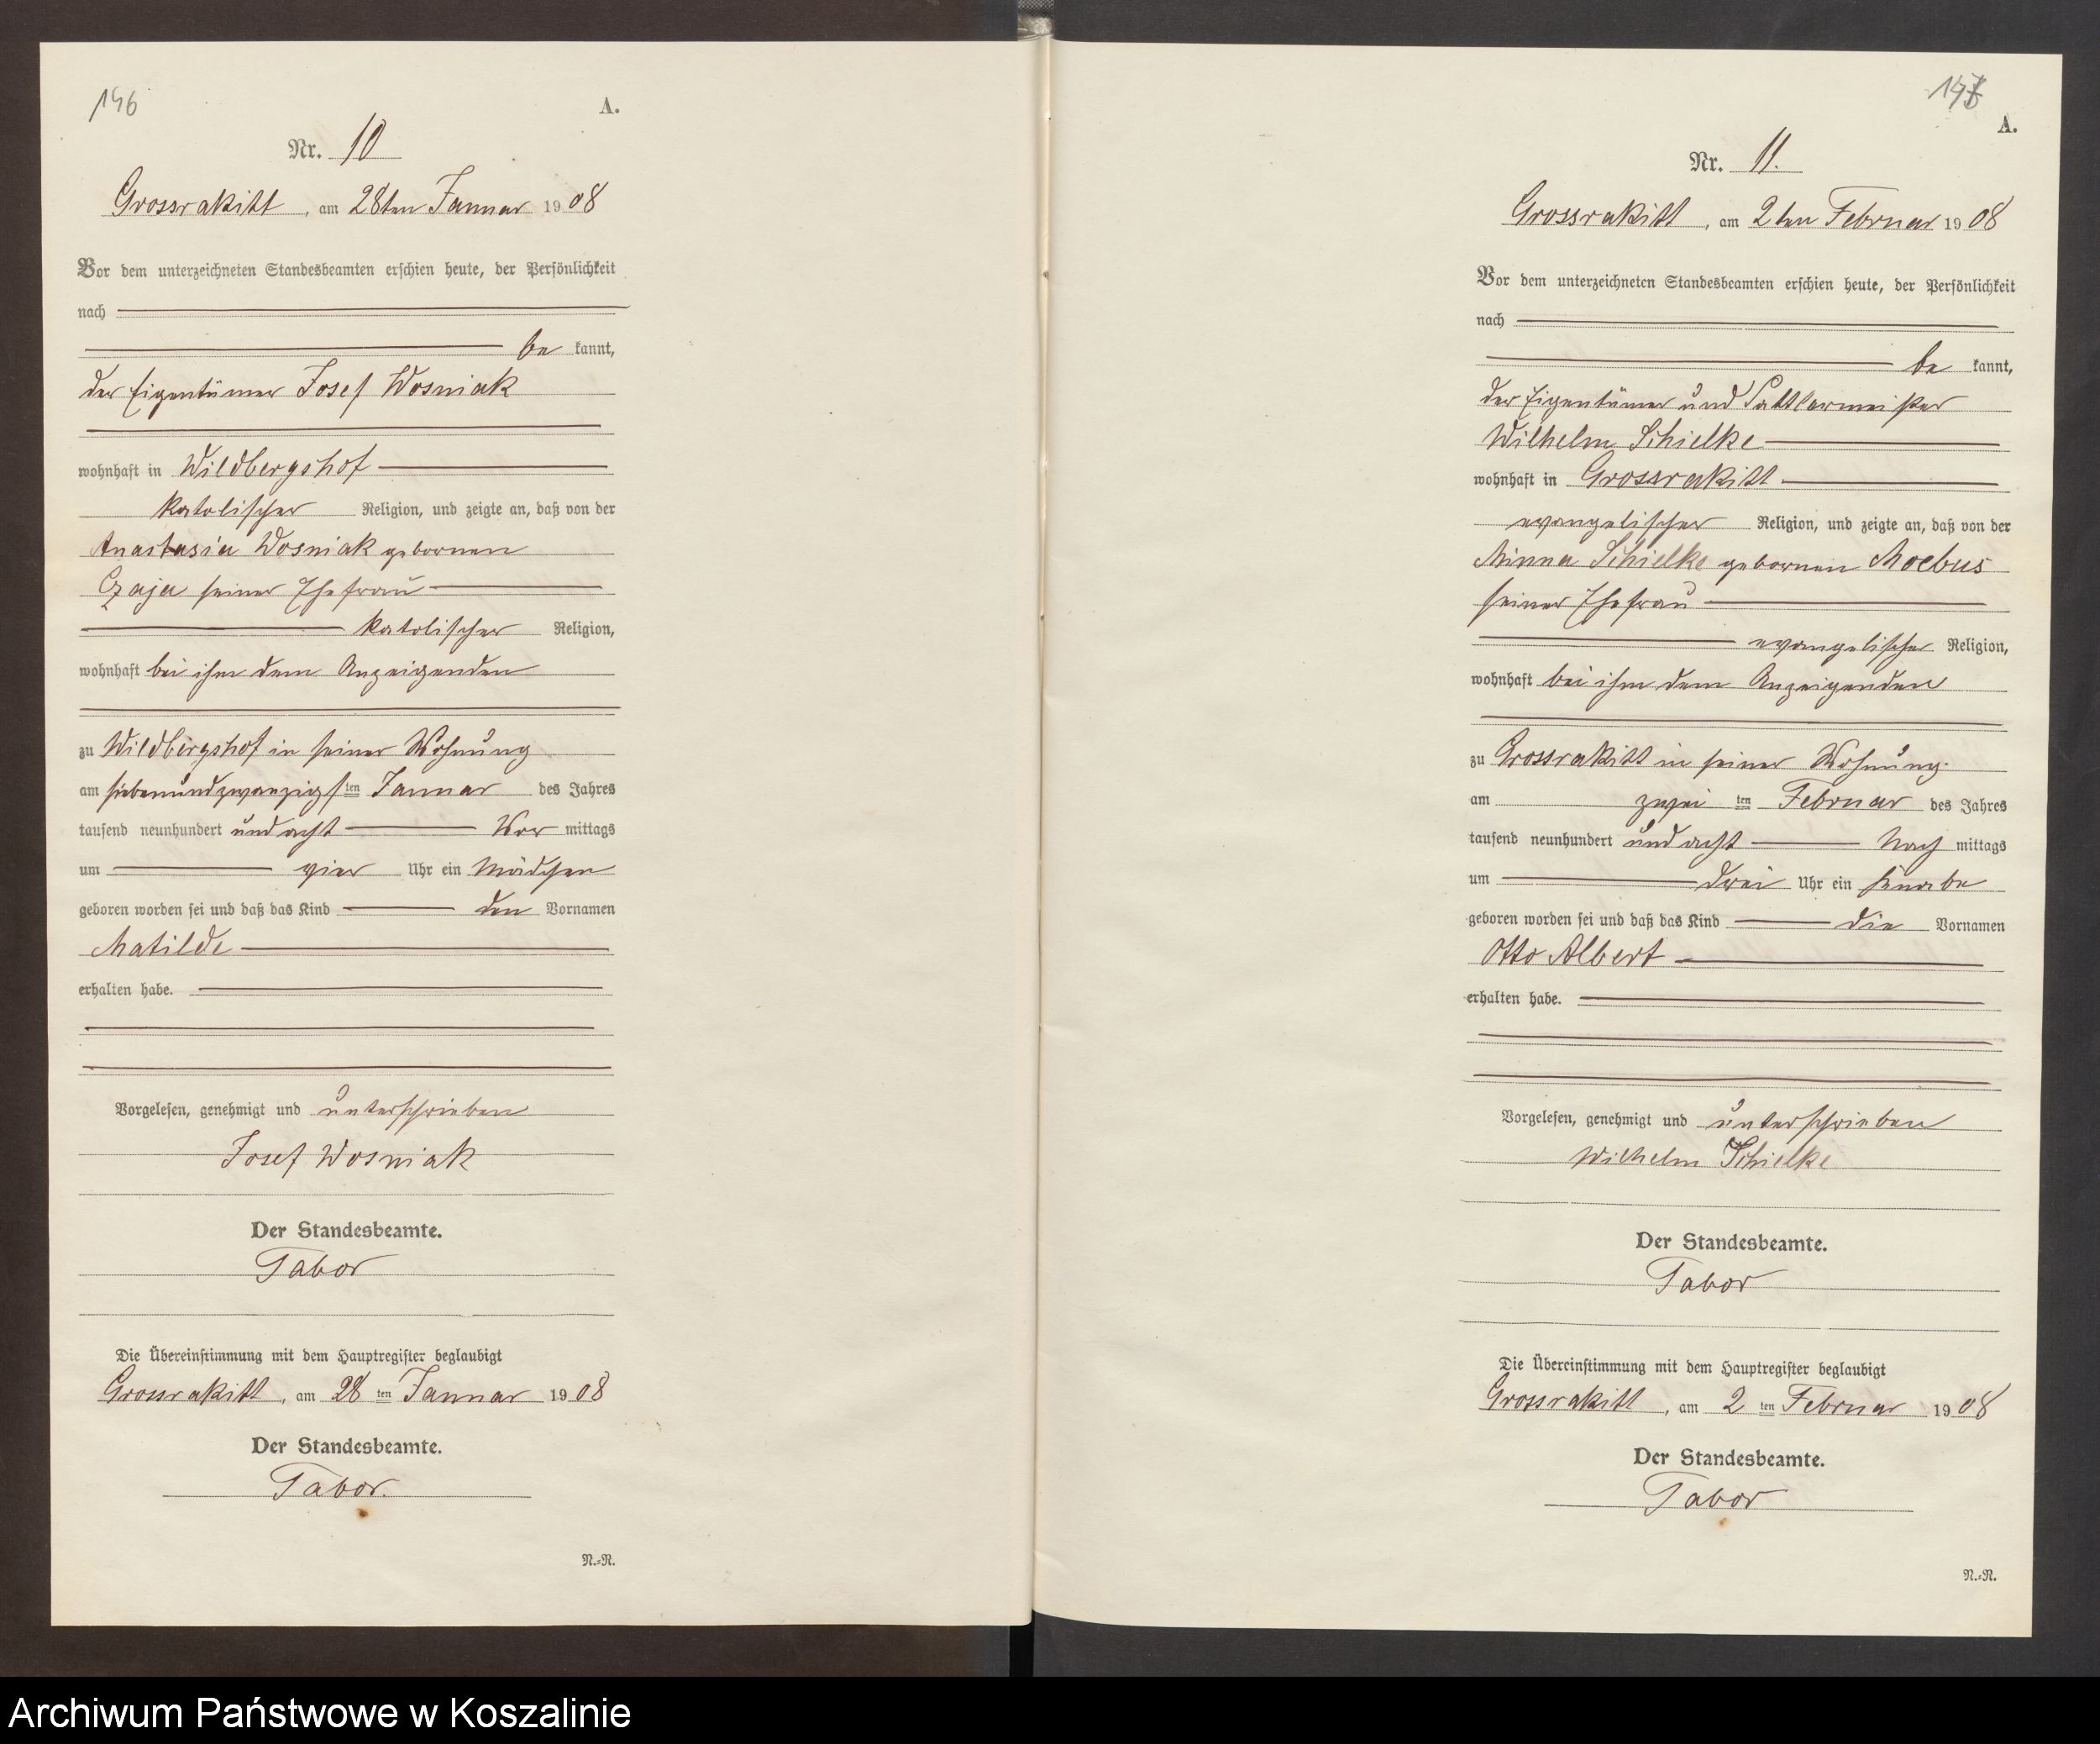 146
A.
Nr. 10
Grossrakitt, am 28ten Januar 1908
Vor dem unterzeichneten Standesbeamten erschien heute, der Persönlichkeit
nach
be kannt,
der Eigentümer Josef Wosniak
wohnhaft in Wildbergshof
katolischer Religion, und zeigte an, daß von der
Anastasia Wosniak gebornen
Czaja seiner Ehefrau
katolischer Religion,
wohnhaft bei ihm dem Anzeigenden
zu Wildbergshof in seiner Wohnung
am siebenundzwanzigsten Januar des Jahres
tausend neunhundert und acht Vor mittags
um vier Uhr ein Mädchen
geboren worden sei und daß das Kind den Vornamen
Matilde
erhalten habe.
Vorgelesen, genehmigt und unterschrieben
Josef Wosniak
Der Standesbeamte.
Tabor
Die Übereinstimmung mit dem Hauptregister beglaubigt
Grossrakitt, am 28 ten Januar 1908
Der Standesbeamte.
Tabor.
N.=R.
147
A.
Nr. 11.
Grossrakitt, am 2ten Februar 1908
Vor dem unterzeichneten Standesbeamten erschien heute, der Persönlichkeit
nach
be kannt,
der Eigentümer und Sattlermeister
Wilhelm Schielke
wohnhaft in Grossrakitt
evangelischer Religion, und zeigte an, daß von der
Minna Schielke gebornen Moebus
seiner Ehefrau
evangelischer Religion,
wohnhaft bei ihm dem Anzeigenden
zu Grossrakitt in seiner Wohnung
am zwei ten Februar des Jahres
tausend neunhundert und acht Nach mittags
um drei Uhr ein Knabe
geboren worden sei und daß das Kind die Vornamen
Otto Albert
erhalten habe.
Vorgelesen, genehmigt und unterschrieben
Wilhelm Schielke
Der Standesbeamte.
Tabor
Die Übereinstimmung mit dem Hauptregister beglaubigt
Grossrakitt, am 2 ten Februar 1908
Der Standesbeamte.
Tabor
N.=R.
Archiwum Państwowe w Koszalinie